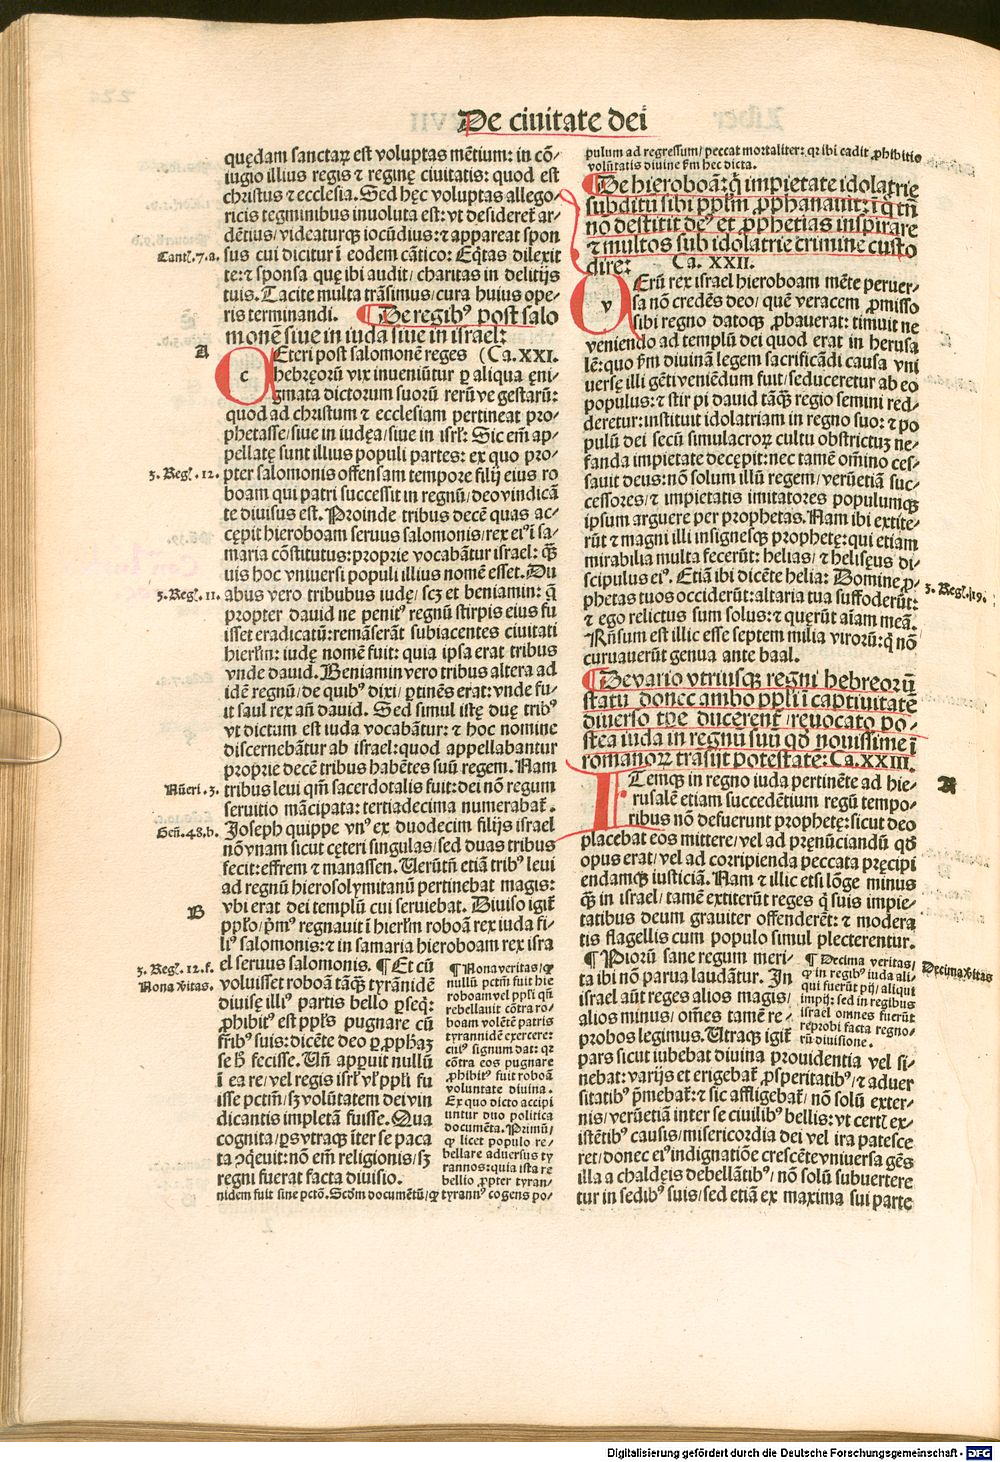 De ciuitate dei
quędam sanctaꝝ est voluptas mētium: in cō/
iugio illius regis ⁊ reginę ciuitatis: quod est
christus ⁊ ecclesia. Sed hęc voluptas allego/
ricis tegminibus inuoluta est: vt desideret̄ ar/
dētius/videaturqꝫ iocūdius: ⁊ appareat spon
Cantꝭ.7.a.
sus cui dicitur ī eodem cātico: Eq̄tas dilexit
te: ⁊ sponsa quę ibi audit/charitas in delitijs
tuis. Tacite multa trāsimus/cura huius ope/
ris terminandi. ¶ De regibꝰ post salo
monē siue in iuda siue in israel:
A
c Eteri post salomonē reges (Ca.XXI.
hebręorū vix inueniūtur ꝑ aliqua ęni/
gmata dictorum suorū rerūve gestarū:
quod ad christum ⁊ ecclesiam pertineat pro/
phetasse/siue in iudęa/siue in isrł: Sic em̄ ap/
pellatę sunt illius populi partes: ex quo pro/
3. Regꝭ. 12.
pter salomonis offensam tempore filij eius ro
boam qui patri successit in regnū/deo vindicā
te diuisus est. Proinde tribus decē quas ac/
cępit hieroboam seruus salomonis/rex eiꝰ ī sa/
maria cōstitutus: proprie vocabātur israel: qᷓꝫ
uis hoc vniuersi populi illius nomē esset. Du
3. Regꝭ. 11.
abus vero tribubus iudę/scꝫ et beniamin: q̄
propter dauid ne penitꝰ regnū stirpis eius fu
isset eradicatū: remāserāt subiacentes ciuitati
hierłm: iudę nomē fuit: quia ipsa erat tribus
vnde dauid. Beniamin vero tribus altera ad
idē regnū/de quibꝰ dixi/ꝑtinēs erat: vnde fu/
it saul rex an̄ dauid. Sed simul istę duę tribꝰ
vt dictum est iuda vocabātur: ⁊ hoc nomine
discernebātur ab israel: quod appellabantur
proprie decē tribus habētes suū regem. Nam
Nūeri. 3.
tribus leui qm̄ sacerdotalis fuit: dei nō regum
seruitio mācipata: tertiadecima numerabat̄.
Gen̄. 48.b.
Joseph quippe vnꝰ ex duodecim filijs israel
nō vnam sicut cęteri singulas/sed duas tribus
fecit: effrem ⁊ manassen. Uerūtn̄ etiā tribꝰ leui
ad regnū hierosolymitanū pertinebat magis:
B
vbi erat dei templū cui seruiebat. Diuiso igit̄
ppło/pꝛmꝰ regnauit ī hierłm roboā rex iuda fi/
liꝰ salomonis: ⁊ in samaria hieroboam rex isra
3. Regꝭ. 12.f.
Nona ṽitas.
el seruus salomonis. ¶ Et cū
voluisset roboā tāqꝫ tyrānidē
diuisę illiꝰ partis bello ꝑseq̄:
ꝓhibitꝰ est ppłs pugnare cū
fr̄ibꝰ suis: dicēte deo ꝑ ꝓph̄aꝫ
se h̄ fecisse. Un̄ apꝑuit nullū
ī ea re/vel regis isrł vł ppłi fu
isse pctm̄/sꝫ volūtatem dei vin
dicantis impletā fuisse. Qua
cognita/ꝑs vtraqꝫ īter se paca
ta ↄq̄euit: nō em̄ religionis/sꝫ
regni fuerat facta diuisio.
¶ Nona veritas/ꝙ
nullū pctm̄ fuit hie
roboam vel ppłi qn̄
rebellauit cōtra ro/
boam volētē patris
tyrannidē exercere:
cuiꝰ signum dat: qꝛ
cōtra eos pugnare
ꝓhibitꝰ fuit roboā
voluntate diuina.
Ex quo dicto accipi
untur duo politica
documēta. Primū/
ꝙ licet populo re/
bellare aduersus ty
rannos: quia ista re
bellio ꝓpter tyran/
nidem fuit sine pctō. Scd̄m documētū/ꝙ tyrannꝰ cogens po/
pulum ad regressum/peccat mortaliter: qꝛ ibi cadit ꝓhibitio
volūtatis diuine fm̄ hec dicta.
¶ De hieroboā: q̇ impietate idolatrie
subditū sibi ppłm ꝓphanauit: ī q̄ tn̄
nō destitit deꝰ et ꝓphetias inspirare
⁊ multos sub idolatrie crimine custo
dire: Ca. XXII.
v Erū rex israel hieroboam mēte peruer/
sa nō credēs deo/quē veracem ꝓmisso
sibi regno datoqꝫ ꝓbauerat: timuit ne
veniendo ad templū dei quod erat in herusa
lē: quo ꝓm diuinā legem sacrificādi causa vni
uersę illi gēti veniēdum fuit/seduceretur ab eo
populus: ⁊ stirpi dauid tāqꝫ regio semini red/
deretur: instituit idolatriam in regno suo: ⁊ po
pulū dei secū simulacroꝝ cultu obstrictuꝫ ne/
fanda impietate decępit: nec tamē om̄ino ces/
sauit deus: nō solum illū regem/verūetiā suc/
cessores/⁊ impietatis imitatores populumqꝫ
ipsum arguere per prophetas. Nam ibi extite/
rūt ⁊ magni illi insignesqꝫ prophetę: qui etiam
mirabilia multa fecerūt: helias/⁊ helisęus di/
scipulus eiꝰ. Etiā ibi dicēte helia: Domine ꝓ/
3. Regꝭ. 19.
phetas tuos occiderūt: altaria tua suffoderūt:
⁊ ego relictus sum solus: ⁊ quęrūt aīam meā.
Rn̄sum est illic esse septem milia virorū: q̇ nō
curuauerūt genua ante baal.
¶ De vario vtriusqꝫ regni hebreorū
statu donec ambo ppłi ī captiuitatē
diuerso tꝑe ducerent̄/reuocato po/
stea iuda in regnū suū qd̄ nouissime ī
romanoꝝ trāsijt potestatē: Ca. XXIII.
A
I Temqꝫ in regno iuda pertinēte ad hie/
rusalē etiam succedētium regū tempo/
ribus nō defuerunt prophetę: sicut deo
placebat eos mittere/vel ad pręnūciandū qd̄
opus erat/vel ad corripienda peccata pręcipi
endamqꝫ iusticiā. Nam ⁊ illic etsi lōge minus
qᷓꝫ in israel/tamē extiterūt reges q̇ suis impie/
tatibus deum grauiter offenderēt: ⁊ modera
tis flagellis cum populo simul plecterentur.
¶ Piorū sane regum meri/
ta ibi nō parua laudātur. In
israel aūt reges alios magis/
alios minus/om̄es tamē re/
probos legimus. Utraqꝫ igit̄
¶ Decima veritas/
ꝙ in regibꝰ iuda ali/
qui fuerūt pij/aliqui
impij: sed in regibus
israel omnes fuerūt
reprobi facta regno/
rū diuisione.
Decima ṽitas
pars sicut iubebat diuina prouidentia vel si/
nebat: varijs et erigebat̄ ꝓsperitatibꝰ/⁊ aduer
sitatibꝰ pꝛmebat̄: ⁊ sic affligebat̄/nō solū exter/
nis/verūetiā inter se ciuilibꝰ bellis: vt certꝭ ex/
istētibꝰ causis/misericordia dei vel ira patesce
ret/donec eiꝰ indignatiōe crescēte vniuersa gēs
illa a chaldęis debellātibꝰ/nō solū subuertere
tur in sedibꝰ suis/sed etiā ex maxima sui parte
Digitalisierung gefördert durch die Deutsche Forschungsgemeinschaft - DFG